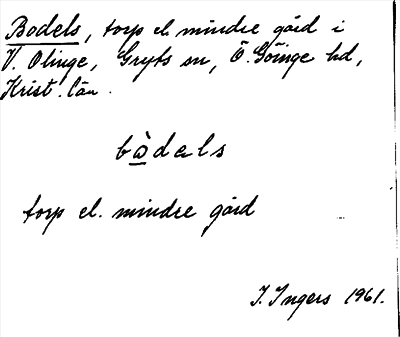 Bodels, torp el. mindre gård i
V. Olinge, Gryts sn, Ö. Göinge hd,
Krist. län.
bòdels
torp el. mindre gård
I. Ingers 1961.